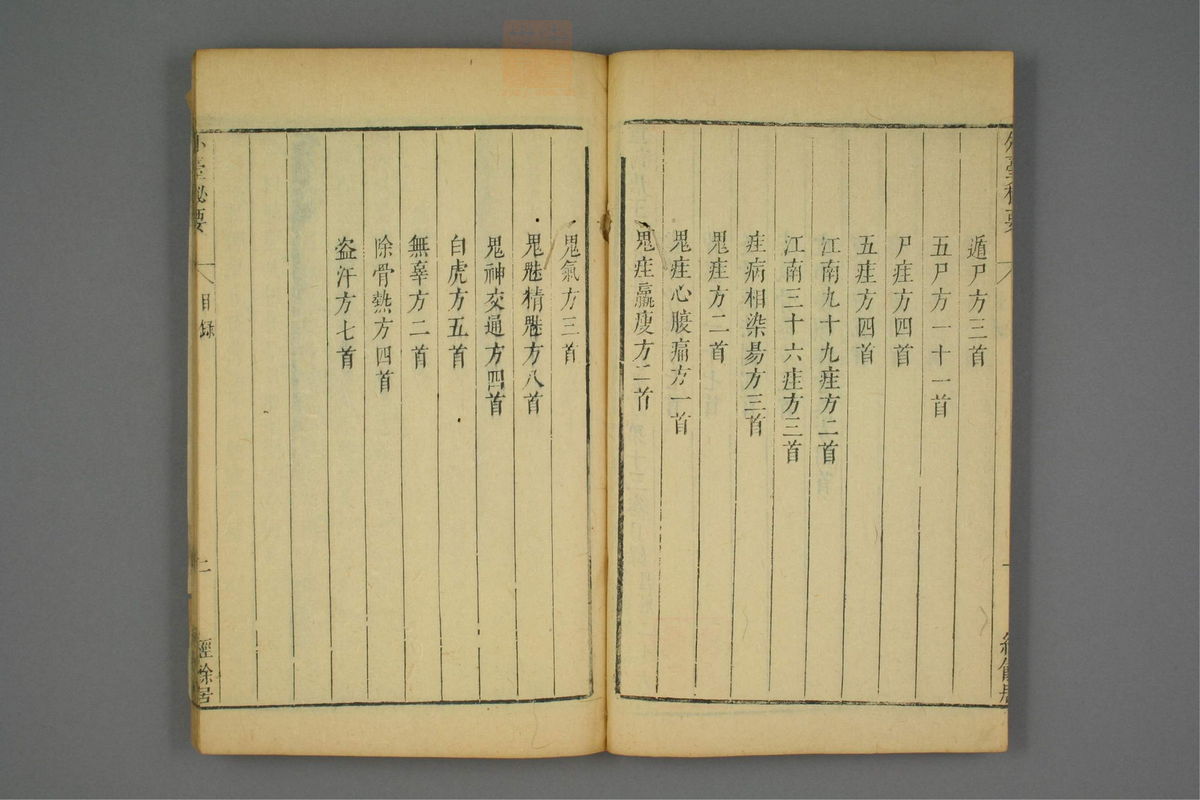 外臺秘要
遁尸方三首
五尸方一十一首
尸疰方四首
五疰方四首
江南九十九疰方二首
江南三十六疰方三首
疰病相染易方三首
鬼疰方二首
鬼疰心腹痛方一首
鬼疰羸瘦方二首
一
經餘居
鬼氣方三首
鬼魅精魅方八首
鬼神交通方四首
白虎方五首
無辜方二首
除骨熱方四首
盜汗方七首
外臺秘要
目録
二
經餘居